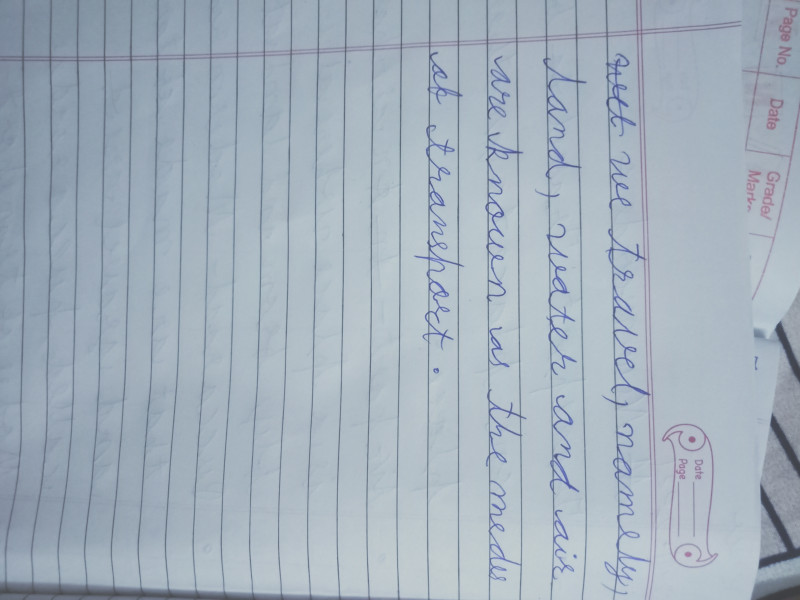 we travel, namely,
land, water and air
are known as the
of transport.
Date
Page
Page No.
Date
Grade/